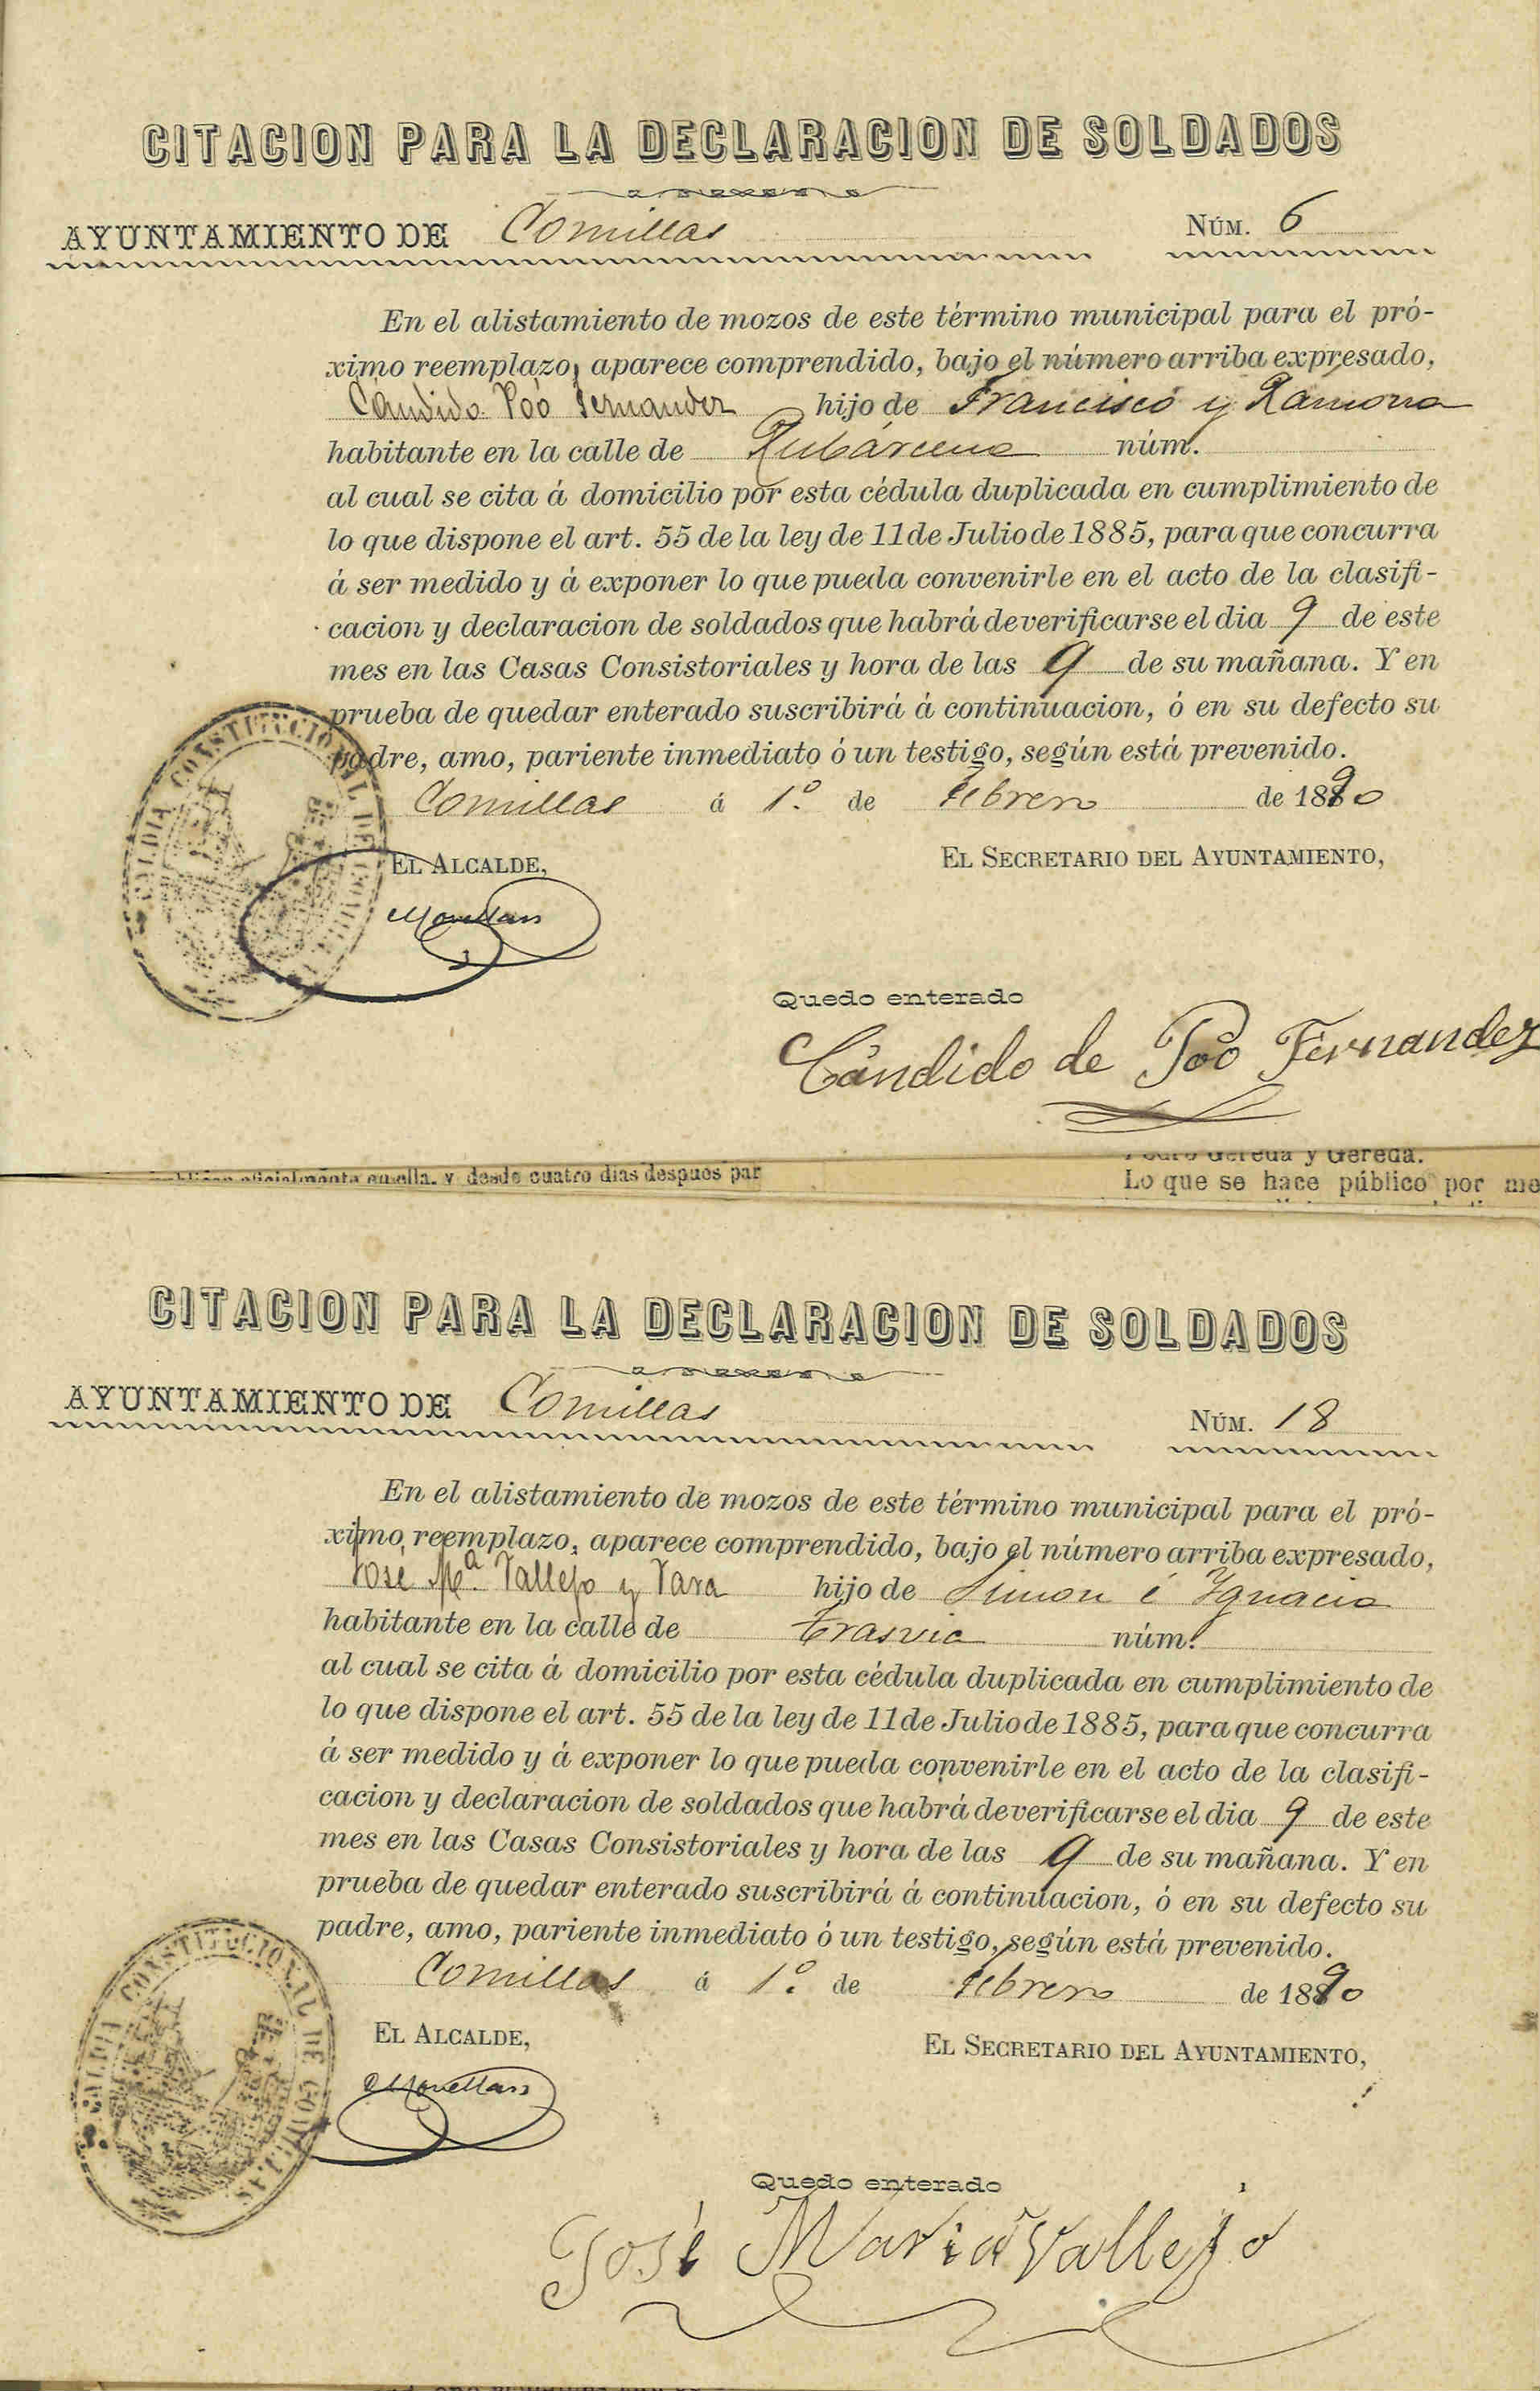 CITACION PARA LA DECLARACION DE SOLDADOS
AYUNTAMIENTO DE Comillas NÚM. 6
En el alistamiento de mozos de este término municipal para el pró-
ximo reemplazo, aparece comprendido, bajo el número arriba expresado,
Cándido Póo Fernandez hijo de Francisco y Ramona
habitante en la calle de Rubárcena núm.
al cual se cita á domicilio por esta cédula duplicada en cumplimiento de
lo que dispone el art. 55 de la ley de 11 de Julio de 1885, para que concurra
á ser medido y á exponer lo que pueda convenirle en el acto de la clasifi-
cacion y declaracion de soldados que habrá de verificarse el dia 9 de este
mes en las Casas Consistoriales y hora de las 9 de su mañana. Y en
prueba de quedar enterado suscribirá á continuacion, ó en su defecto su
padre, amo, pariente inmediato ó un testigo, según está prevenido.
Comillas á 1.º de Febrero de 1890
ALCALDIA CONSTITUCIONAL DE COMILLAS
EL ALCALDE, EL SECRETARIO DEL AYUNTAMIENTO,
Quedo enterado
Cándido de Póo Fernandez
oficialmente en ella, y desde cuatro dias despues par
Gereda y Gereda.
Lo que se hace público por me
CITACION PARA LA DECLARACION DE SOLDADOS
AYUNTAMIENTO DE Comillas NÚM. 18
En el alistamiento de mozos de este término municipal para el pró-
ximo reemplazo, aparece comprendido, bajo el número arriba expresado,
José M.ª Vallejo y Vara hijo de Simon é Ygnacia
habitante en la calle de Trasvia núm.
al cual se cita á domicilio por esta cédula duplicada en cumplimiento de
lo que dispone el art. 55 de la ley de 11 de Julio de 1885, para que concurra
á ser medido y á exponer lo que pueda convenirle en el acto de la clasifi-
cacion y declaracion de soldados que habrá de verificarse el dia 9 de este
mes en las Casas Consistoriales y hora de las 9 de su mañana. Y en
prueba de quedar enterado suscribirá á continuacion, ó en su defecto su
padre, amo, pariente inmediato ó un testigo, según está prevenido.
Comillas á 1.º de Febrero de 1890
ALCALDIA CONSTITUCIONAL DE COMILLAS
EL ALCALDE, EL SECRETARIO DEL AYUNTAMIENTO,
Quedo enterado
José Maria Vallejo